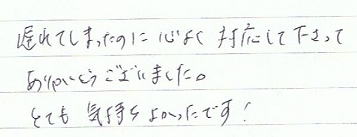 遅れてしまったのに心よく対応して下さって
ありがとうございました。
とても気持ちよかったです！